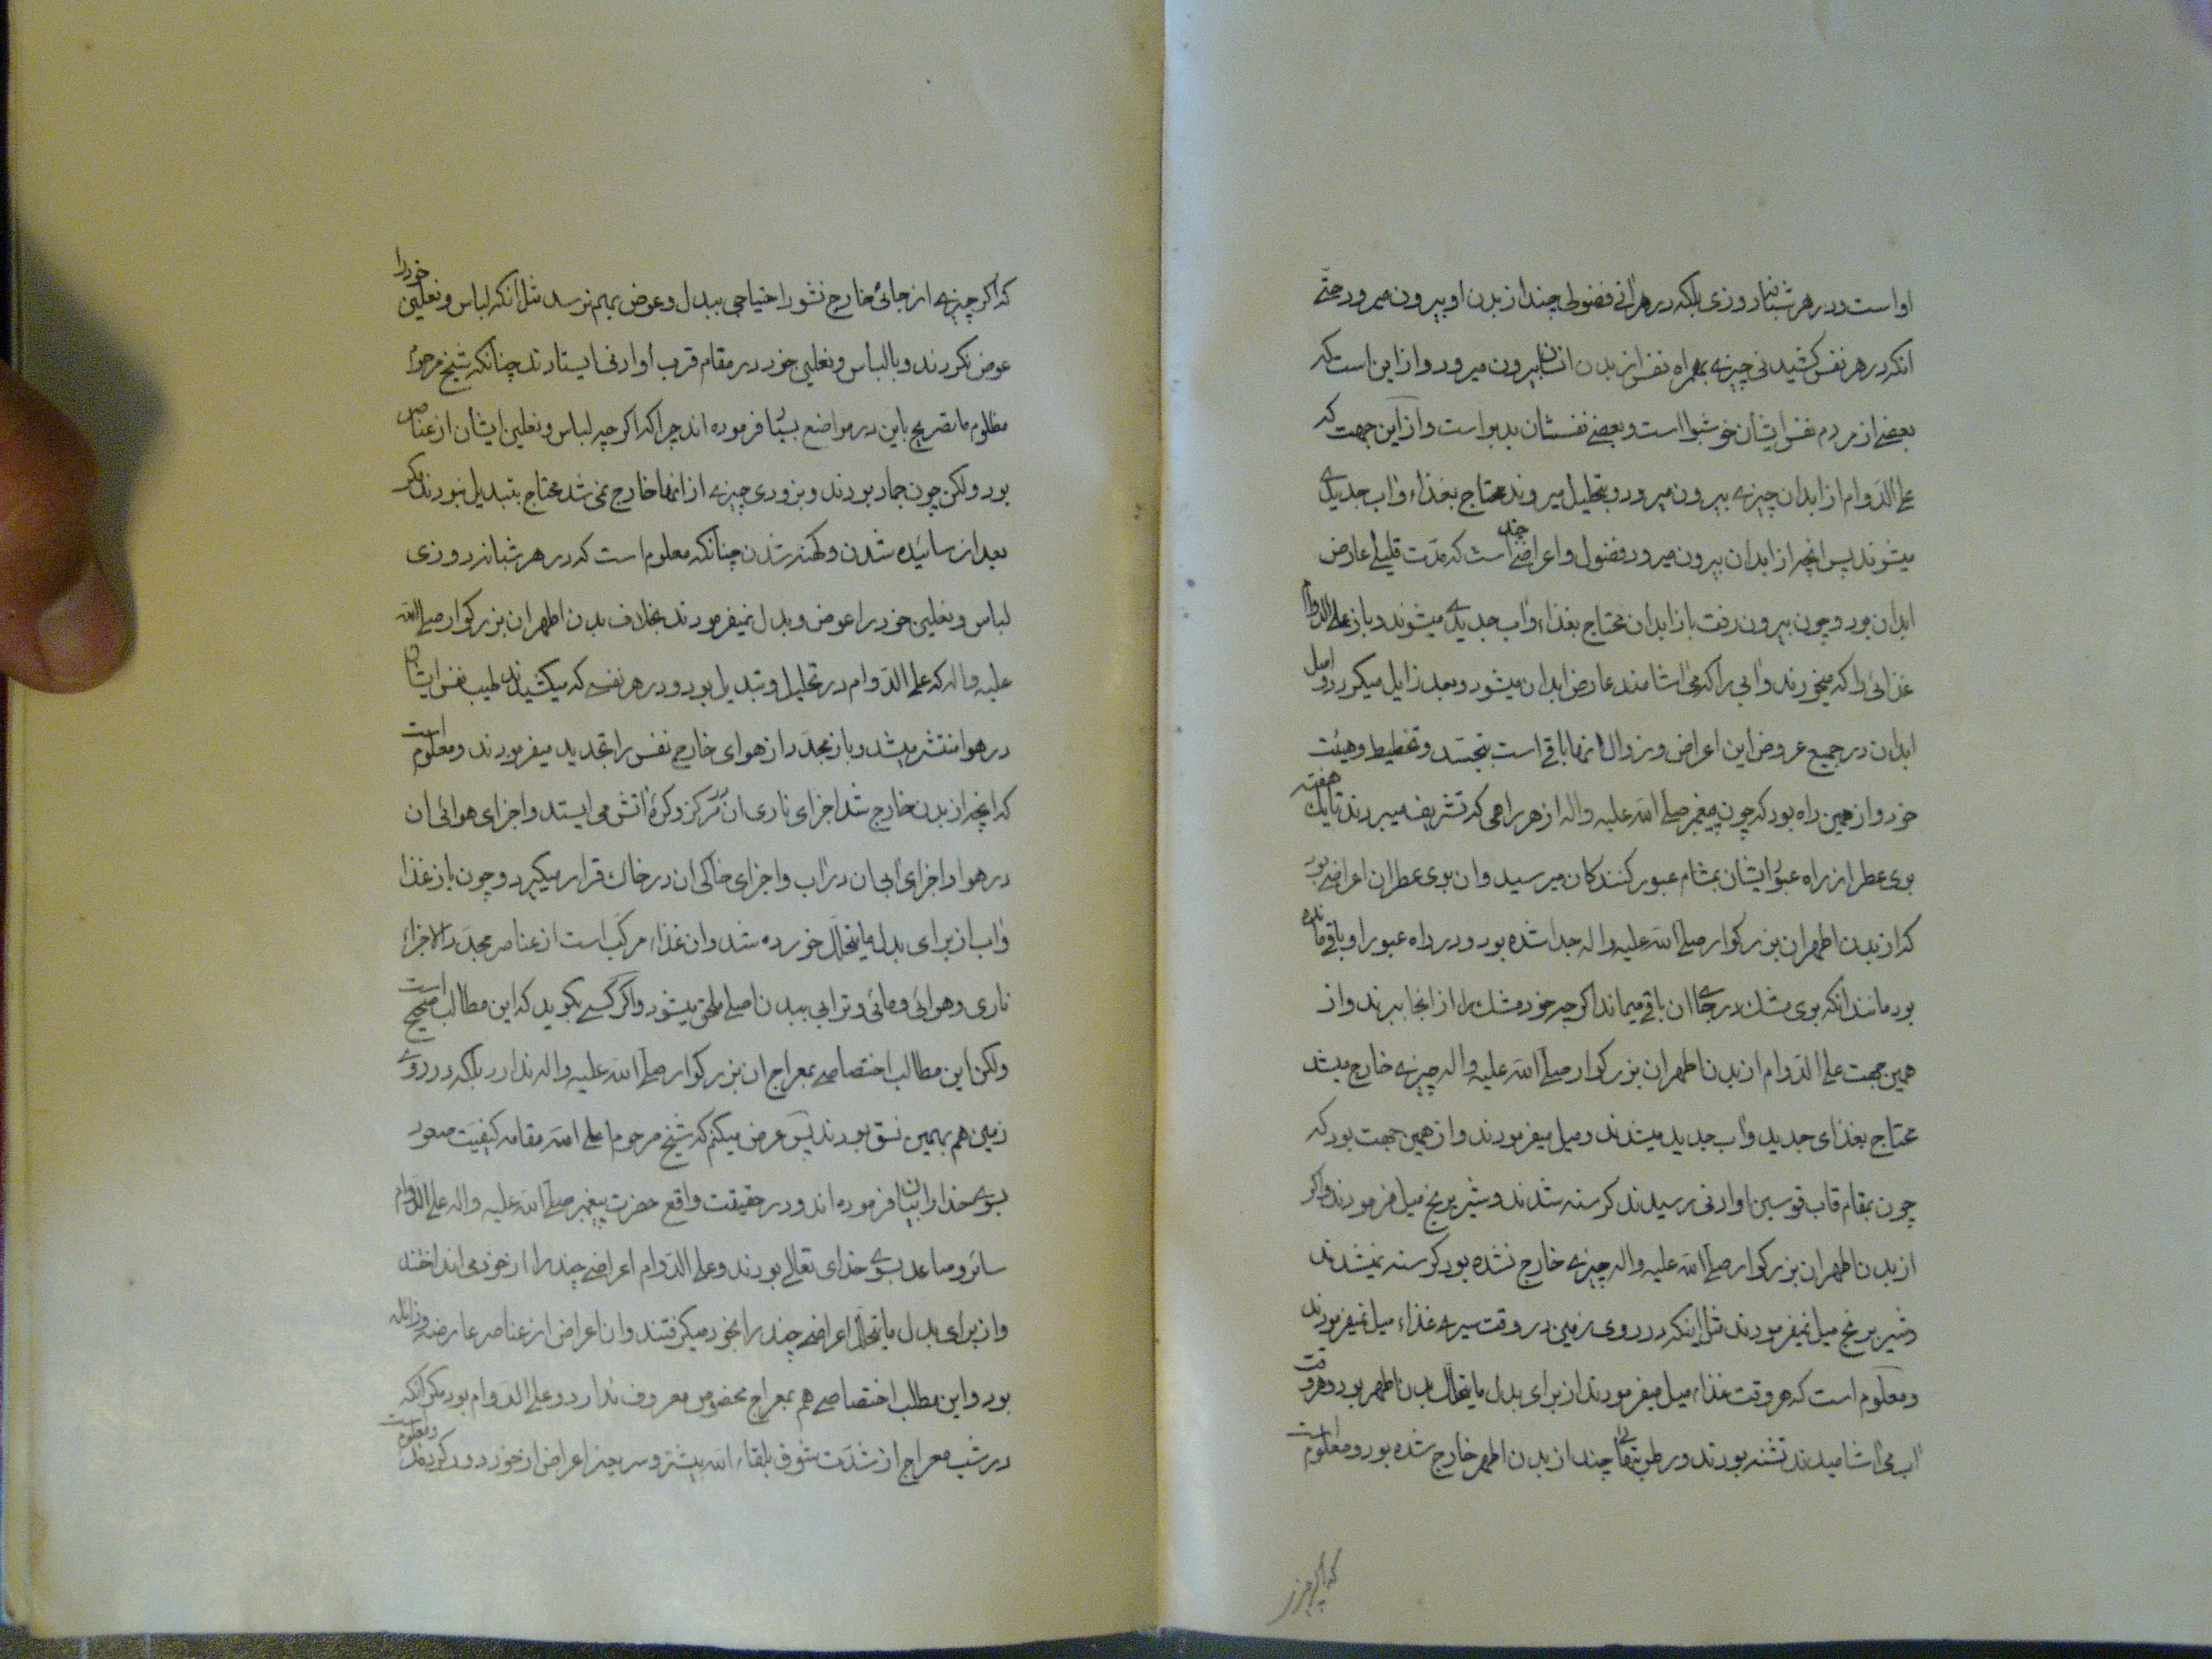 او است و در هر شبانه روزی بلکه در هر آنی فضولی چند از بدن او بیرون میرود حتّی
انکه در هر نفس کشیدنی چیزی بهمراه نفس از بدن انسان بیرون میرود و از این است که
بعضی از مردم نفس ایشان خوشبو است و بعضی نفسشان بدبو است و از این جهت که
علی الدوام از ابدان چیزی بیرون میرود و بتحلیل میروند محتاج بغذاء و اب جدیدی
میشوند پس انچه از ابدان بیرون میرود فضول و اعراضی چند است که مدّت قلیلی عارض
ابدان بود و چون بیرون رفت باز ابدان محتاج بغذاء و اب جدیدی میشوند و باز علی الدوام
غذائی را که میخورند و ابی را که می اشامند عارض ابدان میشود و بعد زایل میکردد و اصل
ابدان در جمیع عروض این اعراض و زوال انها باقی است بتجسّد و تخطیط و هیئت
خود و از همین راه بود که چون پیغمبر صلی الله علیه و اله از هر راهی که تشریف میبردند تا یک هفته
بوی عطر از راه عبور ایشان بمشام عبور کنندکان میرسید و ان بوی عطر ان اعراضی بود
که از بدن اطهر ان بزرکوار صلی الله علیه و اله جدا شده بود و در راه عبور او باقی مانده
بود مانند انکه بوی مشک در جای ان باقی میماند اکرچه خود مشک را از انجا ببرند و از
همین جهت علی الدوام از بدن اطهر ان بزرکوار صلی الله علیه و اله چیزی خارج میشد
محتاج بغذای جدید و اب جدید میشدند و میل میفرمودند و از همین جهت بود که
چون بمقام قاب قوسین او ادنی رسیدند کرسنه شدند و شیر برنج میل فرمودند و اکر
از بدن اطهر ان بزرکوار صلی الله علیه و اله چیزی خارج نشده بود کرسنه نمیشدند
و شیر برنج میل نمیفرمودند مثل اینکه در روی زمین در وقت سیری غذاء میل نمیفرمودند
و معلوم است که هر وقت غذاء میل میفرمودند از برای بدل ما یتحلل بدن اطهر بود و هر وقت
اب می اشامیدند تشنه بودند و رطوبتهائی چند از بدن اطهر خارج شده بود و معلوم است
که اکر چیزی
که اکر چیزی از جائی خارج نشود احتیاجی ببدل و عوض بهم نرسد مثل انکه لباس و نعلین خود را
عوض نکردند و با لباس و نعلین خود در مقام قرب او ادنی ایستادند چنانکه شیخ مرحوم
مظلوم ما تصریح باین در مواضع بسیار فرموده اند چرا که اکرچه لباس و نعلین ایشان از عناصر
بود ولکن چون جماد بودند و بزودی چیزی از انها خارج نمی شد محتاج بتبدیل نبودند مکر
بعد از سائیده شدن و کهنه شدن چنانکه معلوم است که در هر شبانه روزی
لباس و نعلین خود را عوض و بدل نمیفرمودند بخلاف بدن اطهر ان بزرکوار صلی الله
علیه و اله که علی الدوام در تحلیل و تبدیل بود و در هر نفسی که میکشیدند طیب نفس ایشان
در هوا منتشر میشد و باز مجدّد از هوای خارج نفس را تجدید میفرمودند و معلوم است
که انچه از بدن خارج شد اجزای ناری ان در مرکز و کرهٔ اتش می ایستد و اجزای هوائی ان
در هوا و اجزای ابی ان در اب و اجزای خاکی ان در خاک قرار میکیرد و چون باز غذا
و اب از برای بدل ما یتحلل خورده شد و ان غذاء مرکب است از عناصر مجدّد الاجزاء
ناری و هوائی و مائی و ترابی ببدن اصلی ملحق میشود و اکر کسی بکوید که این مطالب صحیح است
ولکن این مطالب اختصاصی بمعراج ان بزرکوار صلی الله علیه و اله ندارد بلکه در روی
زمین هم بهمین نسق بودند پس عرض میکنم که شیخ مرحوم اعلی الله مقامه کیفیت صعود
بسوی خدا را بیان فرموده اند و در حقیقت واقع حضرت پیغمبر صلی الله علیه و اله علی الدوام
سائر و صاعد بسوی خدای تعالی بودند و علی الدوام اعراضی چند را از خود می انداختند
و از برای بدل ما یتحلل اعراضی چند را بخود میکرفتند و ان اعراض از عناصر عارضه و زائله
بود و این مطلب اختصاصی هم بمعراج مخصوص معروف ندارد و علی الدوام بود مکر انکه
در شب معراج از شدّت شوق بلقاء الله بیشتر و سریعتر اعراض از خود دور کردند و معلوم است